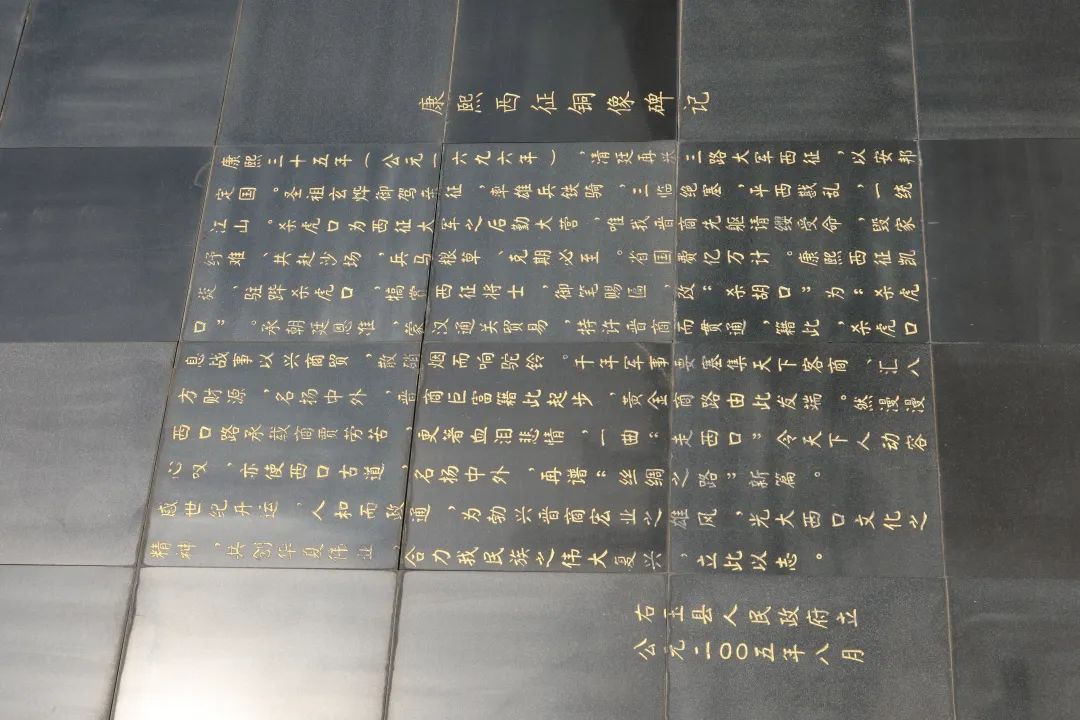 康熙西征铜像碑记
康熙三十五年（公元一六九六年），清廷再兴三路大军西征，以安邦
定国。圣祖玄烨御驾亲征，率雄兵铁骑，三临绝塞，平西戡乱，一统
江山。杀虎口为西征大军之后勤大营，唯我晋商先驱请缨受命，毁家
纾难、共赴沙场，兵马粮草、克期必至。省国费亿万计。康熙西征凯
旋，驻跸杀虎口，犒赏西征将士，御笔赐匾，改“杀胡口”为“杀虎
口”。承朝廷恩准，蒙汉通关贸易，特许晋商而贯通，籍此，杀虎口
息战事以兴商贸，散硝烟而响驼铃。千年军事要塞集天下客商、汇八
方财源，名扬中外，晋商巨富籍此起步，黄金商路由此发端。然漫漫
西口路承载商贾劳苦，更著血泪悲情，一曲“走西口”令天下人动容
心叹，亦使西口古道，名扬中外，再谱“丝绸之路”新篇。
感世纪升运，人和而政通，为勃兴晋商宏业之雄风，光大西口文化之
精神，共创华夏伟业，合力我民族之伟大复兴，立此以志。
右玉县人民政府立
公元二〇〇五年八月